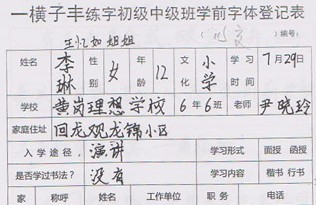 一横子丰练字初级中级班学前字体登记表
王忆如姐姐 编号:
姓名 李琳 性别 女 年龄 12 文化 小学 学习时间 7月29日
学校 黄岗理想学校 6年6班 老师 尹晓玲
家庭住址 回龙观龙锦小区
入学途径, 演讲 学习形式 面授 函授
是否学过书法? 没有 学习内容 楷书 行书
家 称呼 姓名 工作单位 职务 电话